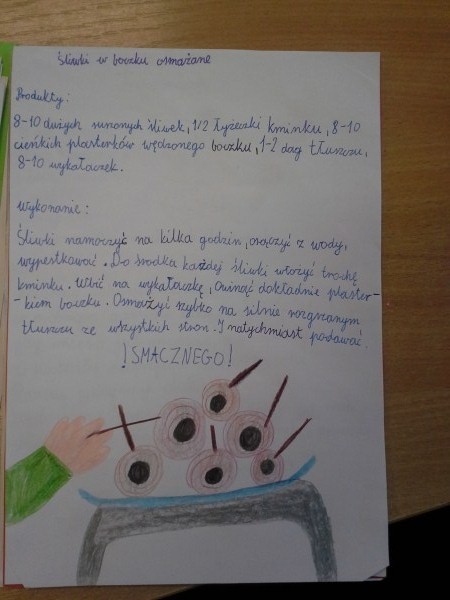 Śliwki w boczku osmażane
Produkty:
8-10 dużych suszonych śliwek, 1/2 łyżeczki kminku, 8-10
cieńkich plasterków wędzonego boczku, 1-2 dag tłuszczu,
8-10 wykałaczek.
Wykonanie:
Śliwki namoczyć na kilka godzin, osączyć z wody,
wypestkować. Do środka każdej śliwki włożyć trochę
kminku. Wbić na wykałaczkę, owinąć dokładnie plaster-
-kiem boczku. Osmażyć szybko na silnie rozgrzanym
tłuszczu ze wszystkich stron. I natychmiast podawać.
!SMACZNEGO!